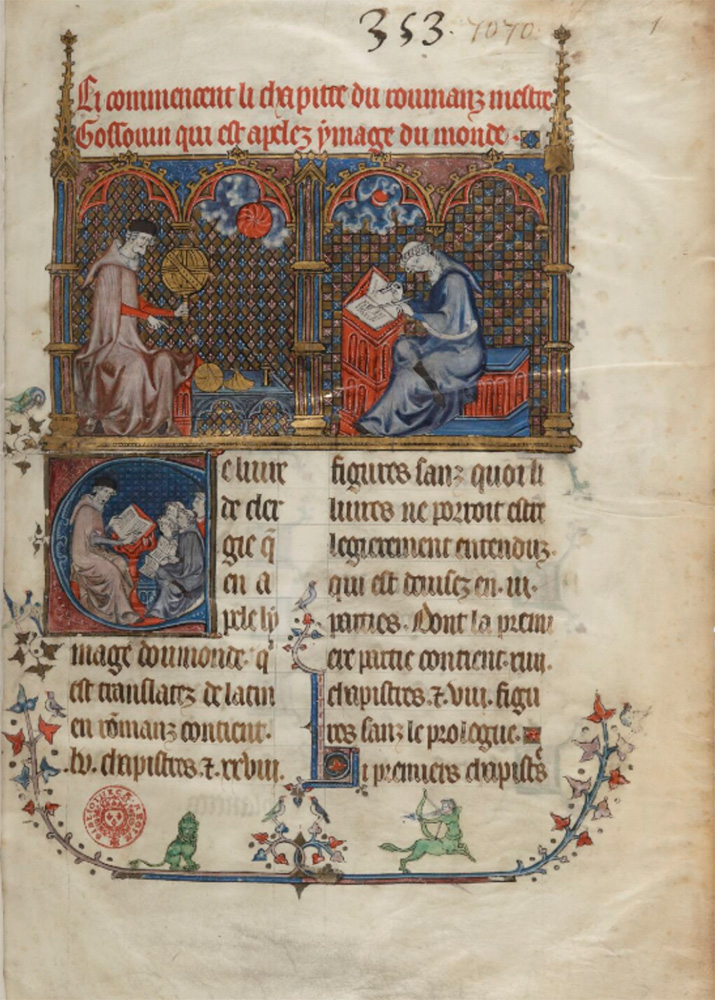 353. 7070. 1
Ci commencent li chapitre du roumanz mestre
Gossouin qui est apelez ymage du monde.
Ce liure
de cler
gie q̃
en a
pele ly
mage dou monde. q'
est translatez de latin
en rõmanz contient.
.lv. chapistres .⁊. xxviii.
figures sanz quoi li
liures ne porroit estre
legierement entenduz.
qui est deuisez en .iii.
parties. Dont la premi
ere partie contient .xiiii.
chapistres .⁊. viii. figu
res sanz le prologue.
Li premiers chapistˀs